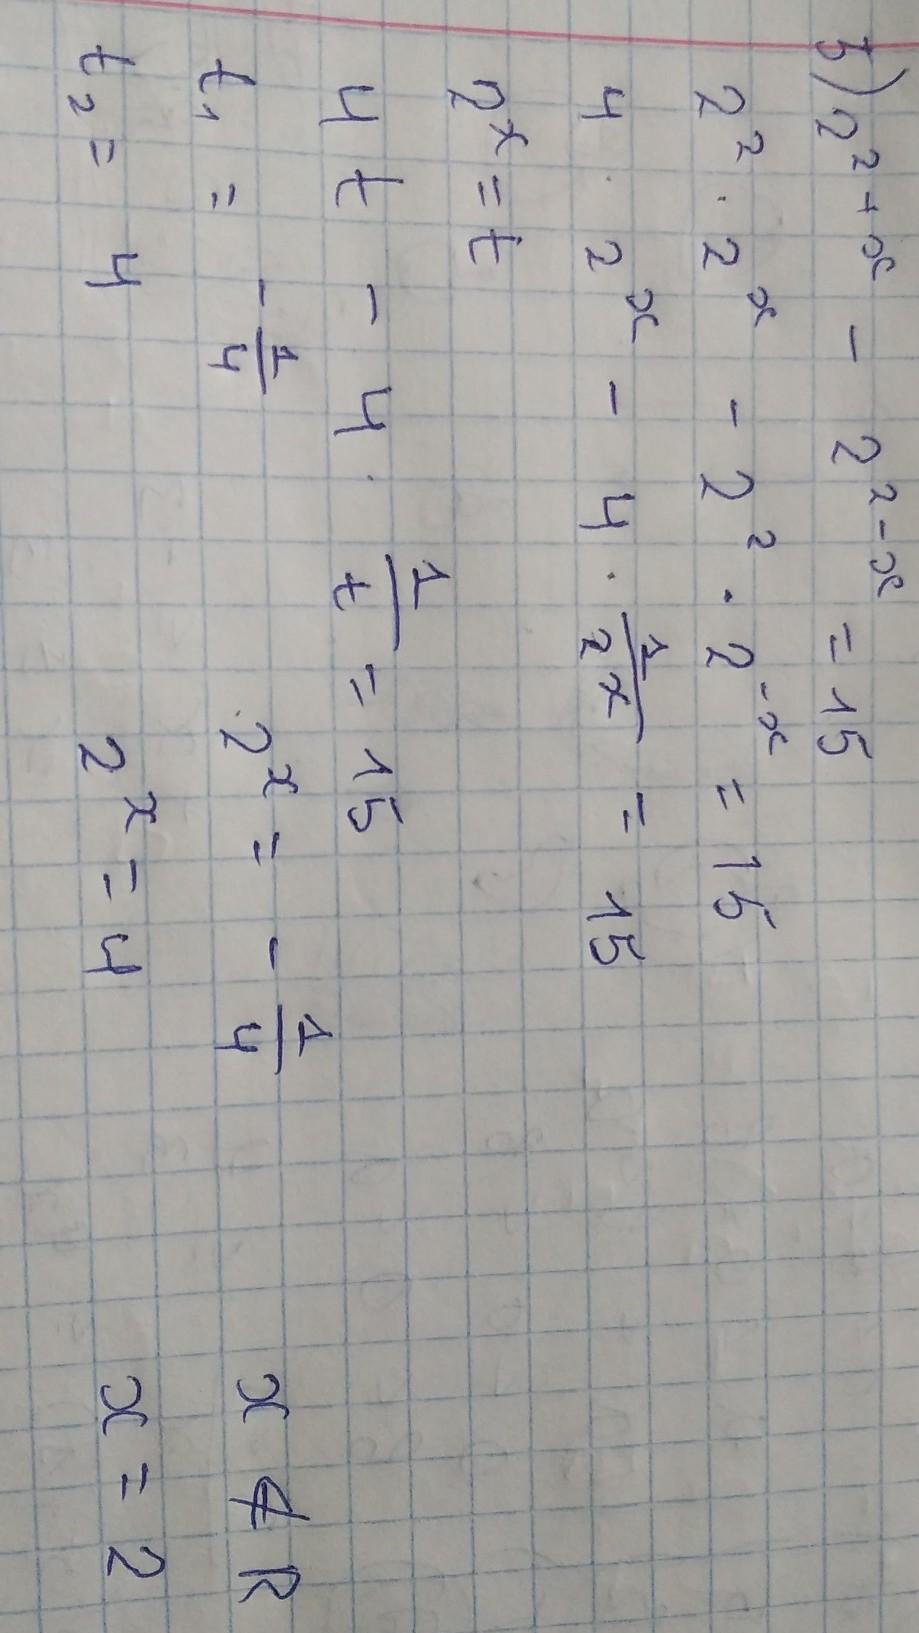 3) 2²⁺ˣ - 2²⁻ˣ = 15
2² · 2ˣ - 2² · 2⁻ˣ = 15
4 · 2ˣ - 4 · 1/2ˣ = 15
2ˣ = t
4t - 4 · 1/t = 15
t₁ = -1/4 2ˣ = -1/4 x ∉ R
t₂ = 4 2ˣ = 4 x = 2